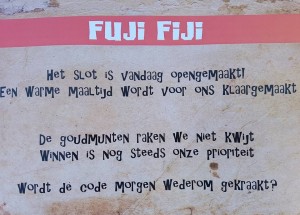 Fuji Fiji
Het slot is vandaag opengemaakt!
Een warme maaltijd wordt voor ons klaargemaakt
De goudmunten raken we niet kwijt
Winnen is nog steeds onze prioriteit
Wordt de code morgen wederom gekraakt?